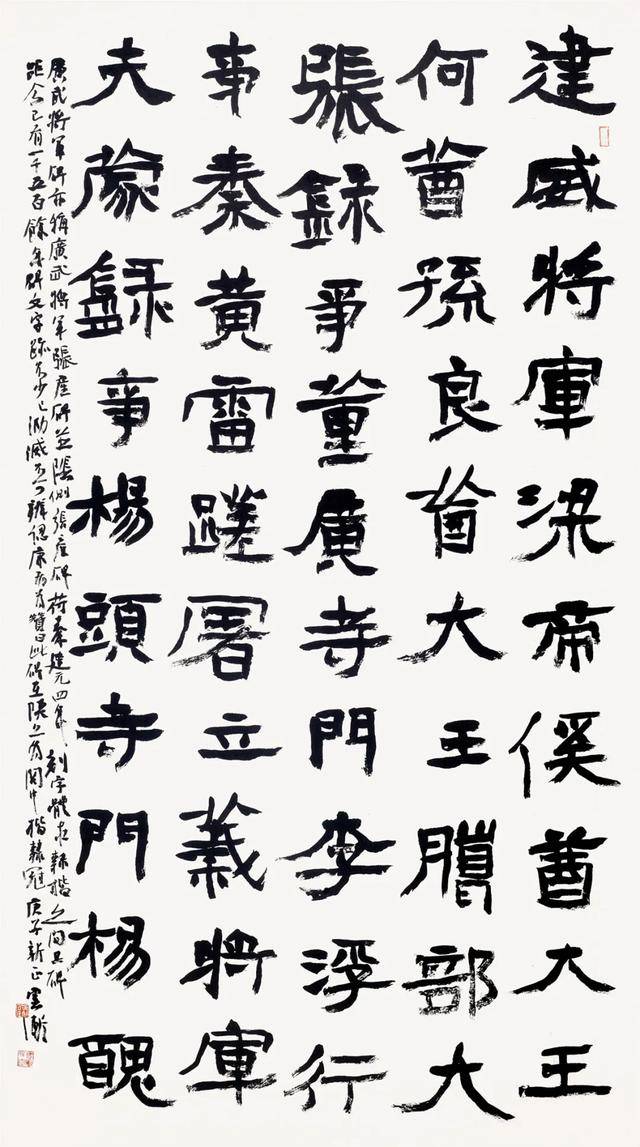 建威將軍梁帝傒酋大王
何酋孫良酋大王部大
張錄事董廣寺門李浮行
事秦黃雷屠立義將軍
夫蒙錄事楊頭寺門楊醜
廣武將軍碑亦稱廣武將軍張產碑並陰側張產碑苻秦建元四年刻字體在隸楷之間其碑
距今已有一千五百餘年碑文字跡不少已泐滅不可辨認康有為贊曰此碑在陝為關中楷隸冠庚子新正